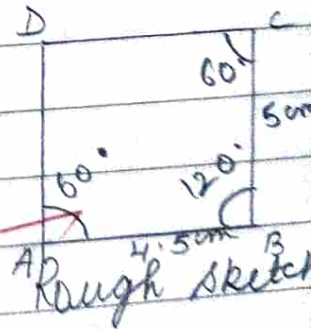 D C
60°
5cm
60° 120°
4.5cm
A B
Rough sketch